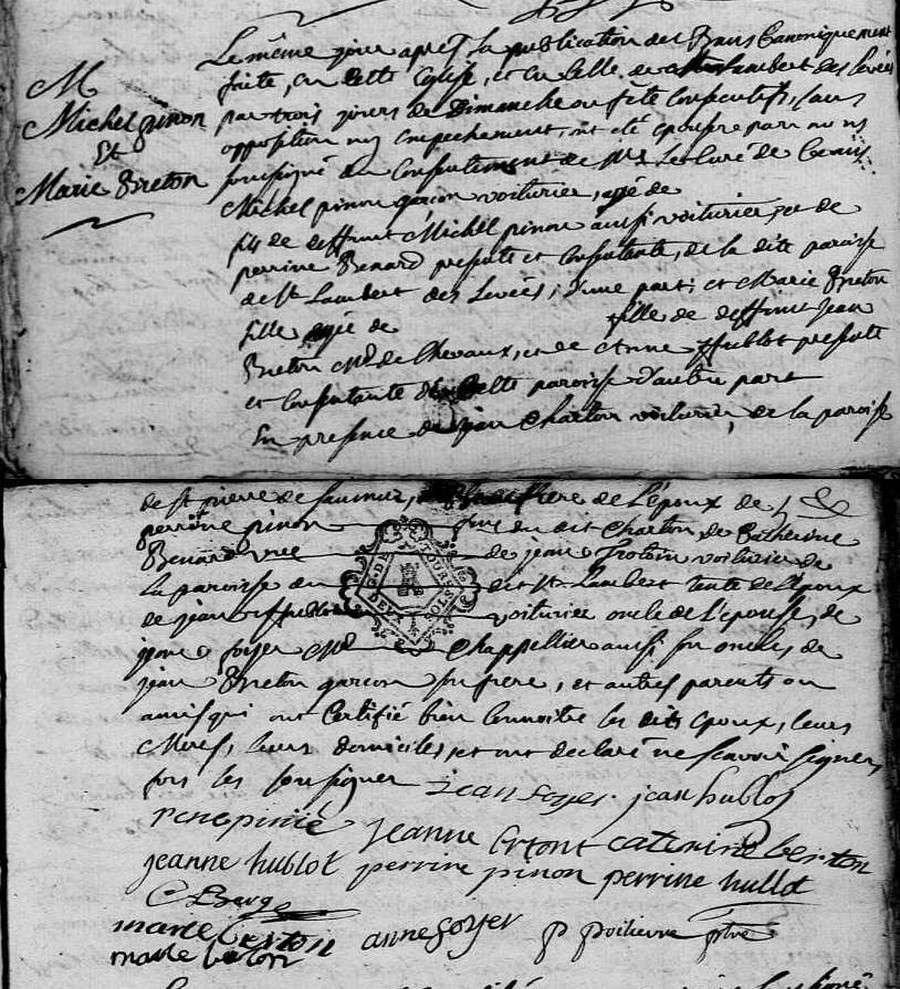 M
Michel pinon
Et
Marie Breton
Le même jour après la publication des Bans Canoniquement
faite, en cette Eglise, et en celle de st Lambert des levées
par trois jours de Dimanche ou fête Consecutifs, sans
opposition ny empechement, ont été épousés par nous
soussigné du Consentement de Mr Le Curé de Ceans
Michel pinon garçon voiturier, agé de
fils de deffunt Michel pinon aussi voiturier, et de
perrine Benard presente et Consentante, de la dite paroisse
de st Lambert des Levées, d'une part; et Marie Breton
fille agée de fille de deffunt Jean
Breton Md de Chevaux, et de Anne hublot presente
et Consentante de cette paroisse d'autre part
En presence de jean Charton voiturier, de la paroisse
de st pierre de saumur, frere de L'époux de
perrine pinon fme du dit Charton de Catherine
Benard vve de jean Trotoin voiturier de
la paroisse du dit st Lambert tente de l'époux
de jean voiturier oncle de L'épouse, de
jean foyer Md Chappellier aussi son oncle, de
jean Breton garcon son frere, et autres parents ou
amis qui ont Certifié bien Connoitre les dits Epoux, leurs
Meres, leurs domiciles, et ont declaré ne scavoir signer,
fors les soussignez jean foyer jean hublot
rene pinié jeanne bretont caterine berton
jeanne hublot perrine pinon perrine hullot
marie berton anne foyer p poitievre ptre
marie breton
GEN. DE TOURS
DEUX SOLS